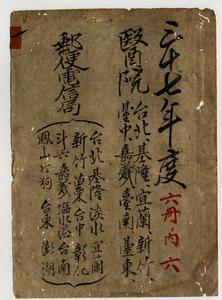 三十七年度
六冊ノ内六
醫院
台北 基隆 宜蘭 新竹
臺中 嘉義 臺南 臺東
郵便電信局
台北 基隆 淡水 宜蘭
新竹 苗栗 台中 彰化
斗六 嘉義 塩水港 台南
鳳山 打狗 台東 澎湖